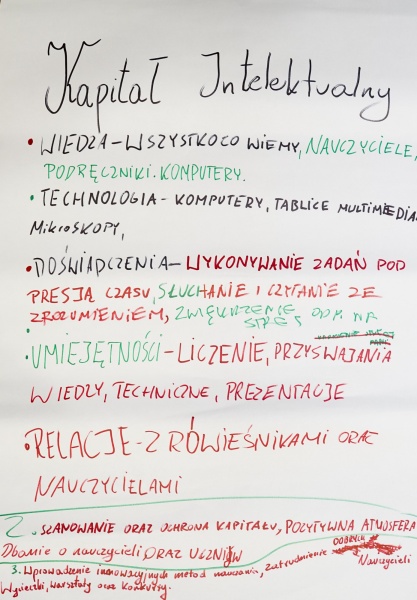 Kapitał Intelektualny
• WIEDZA - WSZYSTKO CO WIEMY, NAUCZYCIELE,
PODRĘCZNIKI. KOMPUTERY.
• TECHNOLOGIA - KOMPUTERY, TABLICE MULTIMEDIA
MIKROSKOPY,
• DOŚWIADCZENIA - WYKONYWANIE ZADAŃ POD
PRESJĄ CZASU, SŁUCHANIE I CZYTANIE ZE
ZROZUMIENIEM, ZWIĘKSZENIE ODP. NA
STRES
• UMIEJĘTNOŚCI - LICZENIE, PRZYSWAJANIA
WIEDZY, TECHNICZNE, PREZENTACJE
• RELACJE - Z RÓWIEŚNIKAMI ORAZ
NAUCZYCIELAMI
2. SZANOWANIE ORAZ OCHRONA KAPITAŁU, POZYTYWNA ATMOSFERA
Dbanie o nauczycieli ORAZ UCZNIÓW
3. Wprowadzenie innowacyjnych metod nauczania, zatrudnienie DOBRYCH Nauczycieli
Wycieczki, warsztaty oraz konkursy.